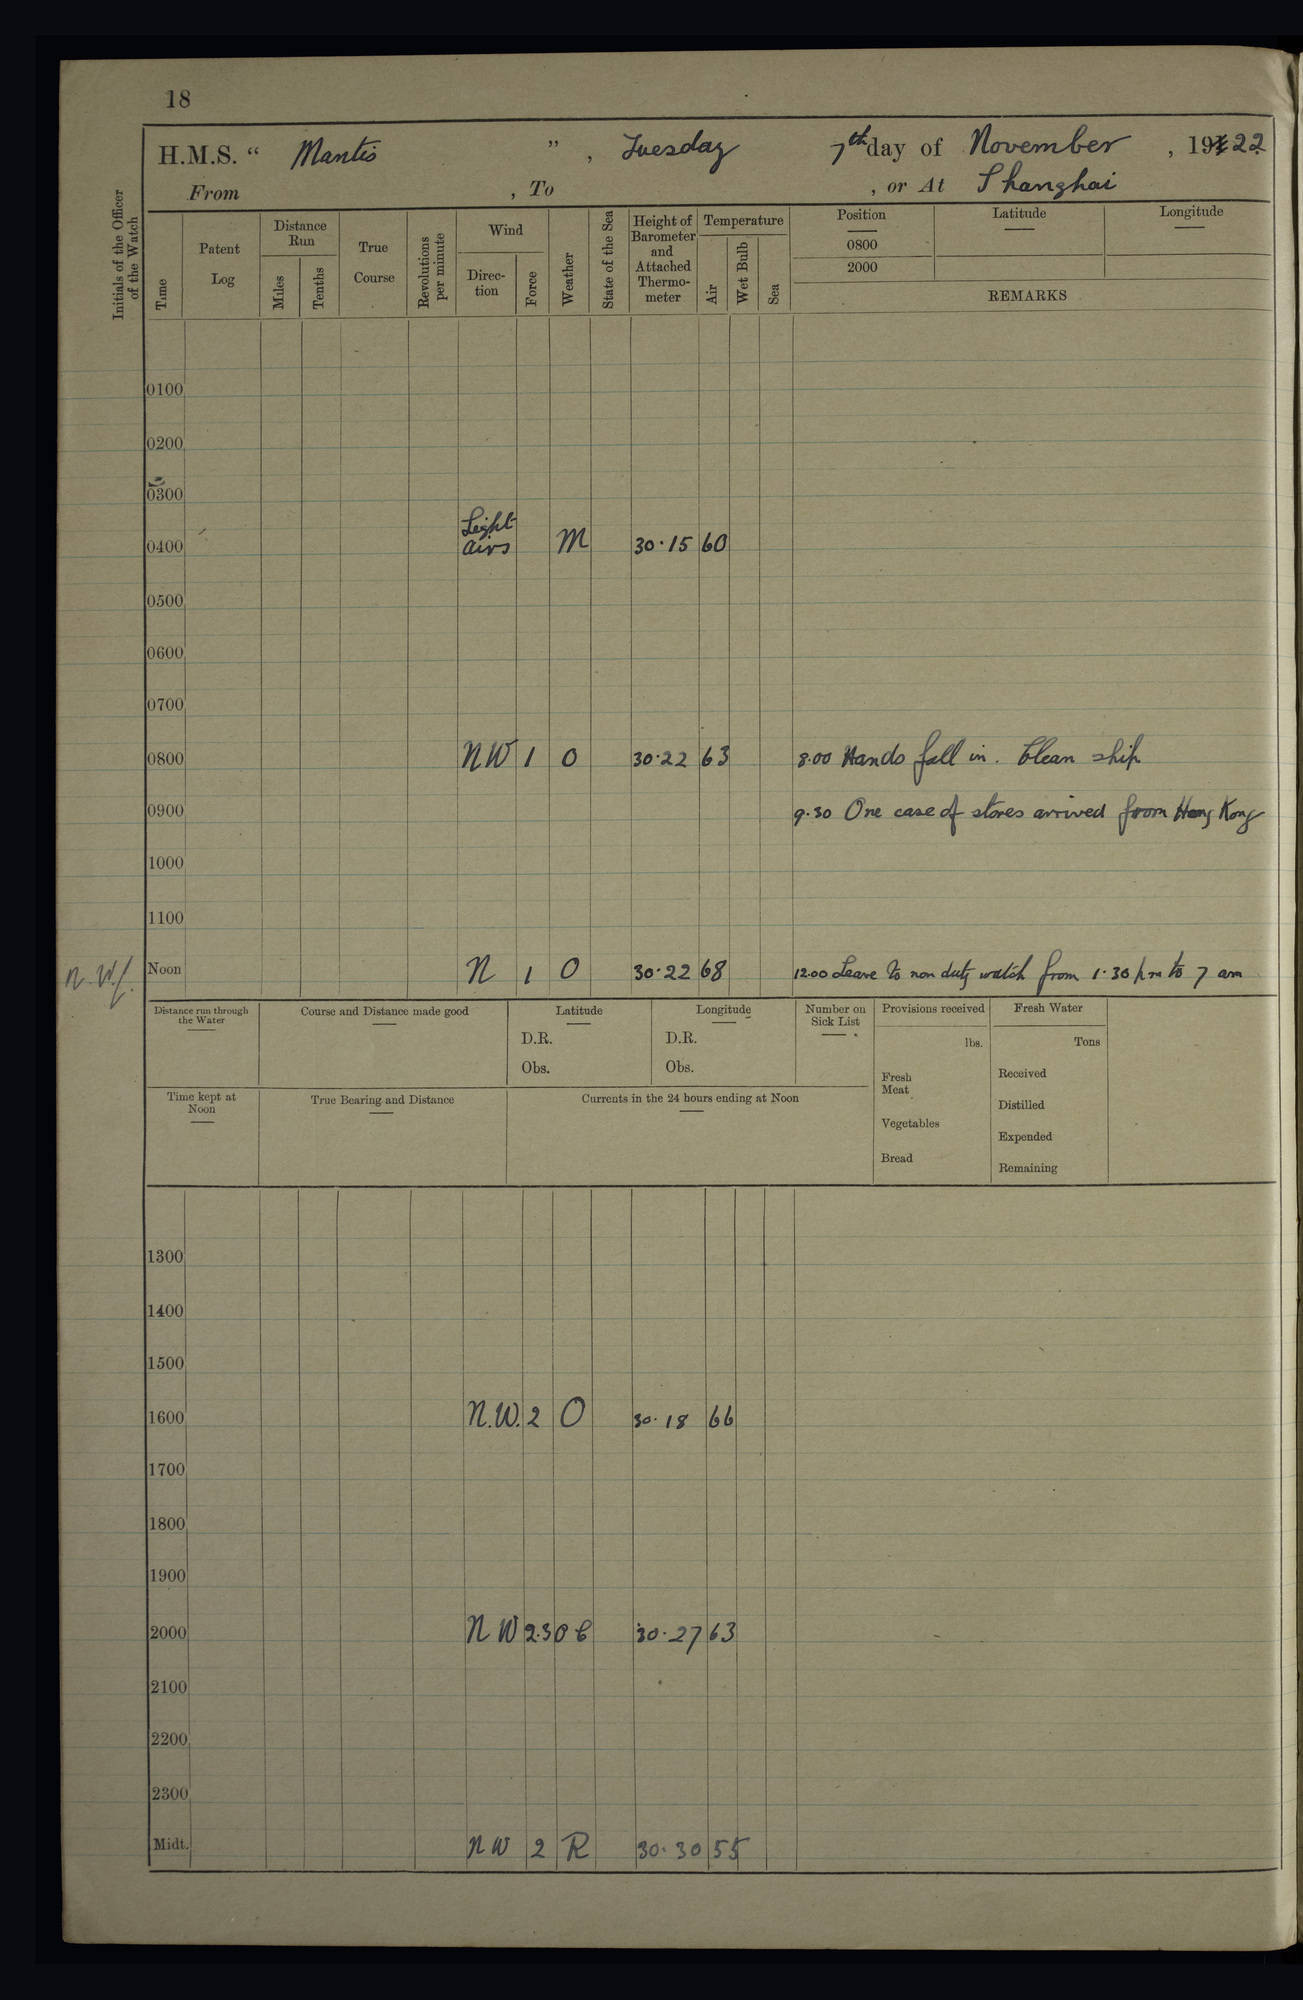 18
H.M.S. “ Mantis ” , Tuesday 7th day of November , 1922
From , To , or At Shanghai
Initials of the Officer of the Watch
Time
Patent Log
Distance Run
Miles
Tenths
True Course
Revolutions per minute
Wind
Direc-tion
Force
Weather
State of the Sea
Height of Barometer and Attached Thermo-meter
Temperature
Air
Wet Bulb
Sea
Position Latitude Longitude
0800
2000
REMARKS
0100
0200
0300
Light
0400 airs M 30·15 60
0500
0600
0700
0800 NW 1 O 30·22 63 8.00 Hands fall in. Clean ship
0900 9.30 One case of stores arrived from Hong Kong
1000
1100
Noon N 1 O 30·22 68 12.00 Leave to non duty watch from 1·30 pm to 7 am
Distance run through the Water
Course and Distance made good
Latitude
D.R.
Obs.
Longitude
D.R.
Obs.
Number on Sick List
Provisions received
lbs.
Fresh Meat
Vegetables
Bread
Fresh Water
Tons
Received
Distilled
Expended
Remaining
Time kept at Noon
True Bearing and Distance
Currents in the 24 hours ending at Noon
1300
1400
1500
1600 N.W. 2 O 30·18 66
1700
1800
1900
2000 NW 2.3 O C 30·27 63
2100
2200
2300
Midt. NW 2 R 30·30 55